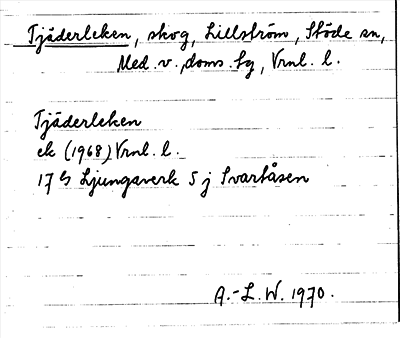 Tjäderleken, skog, Lillström, Stöde sn,
Med. v. doms. sg, Vrnl. l.
Tjäderleken
ek (1968) Vrnl. l.
17 G Ljungaverk 5 j Svartåsen
A.-L. W. 1970.